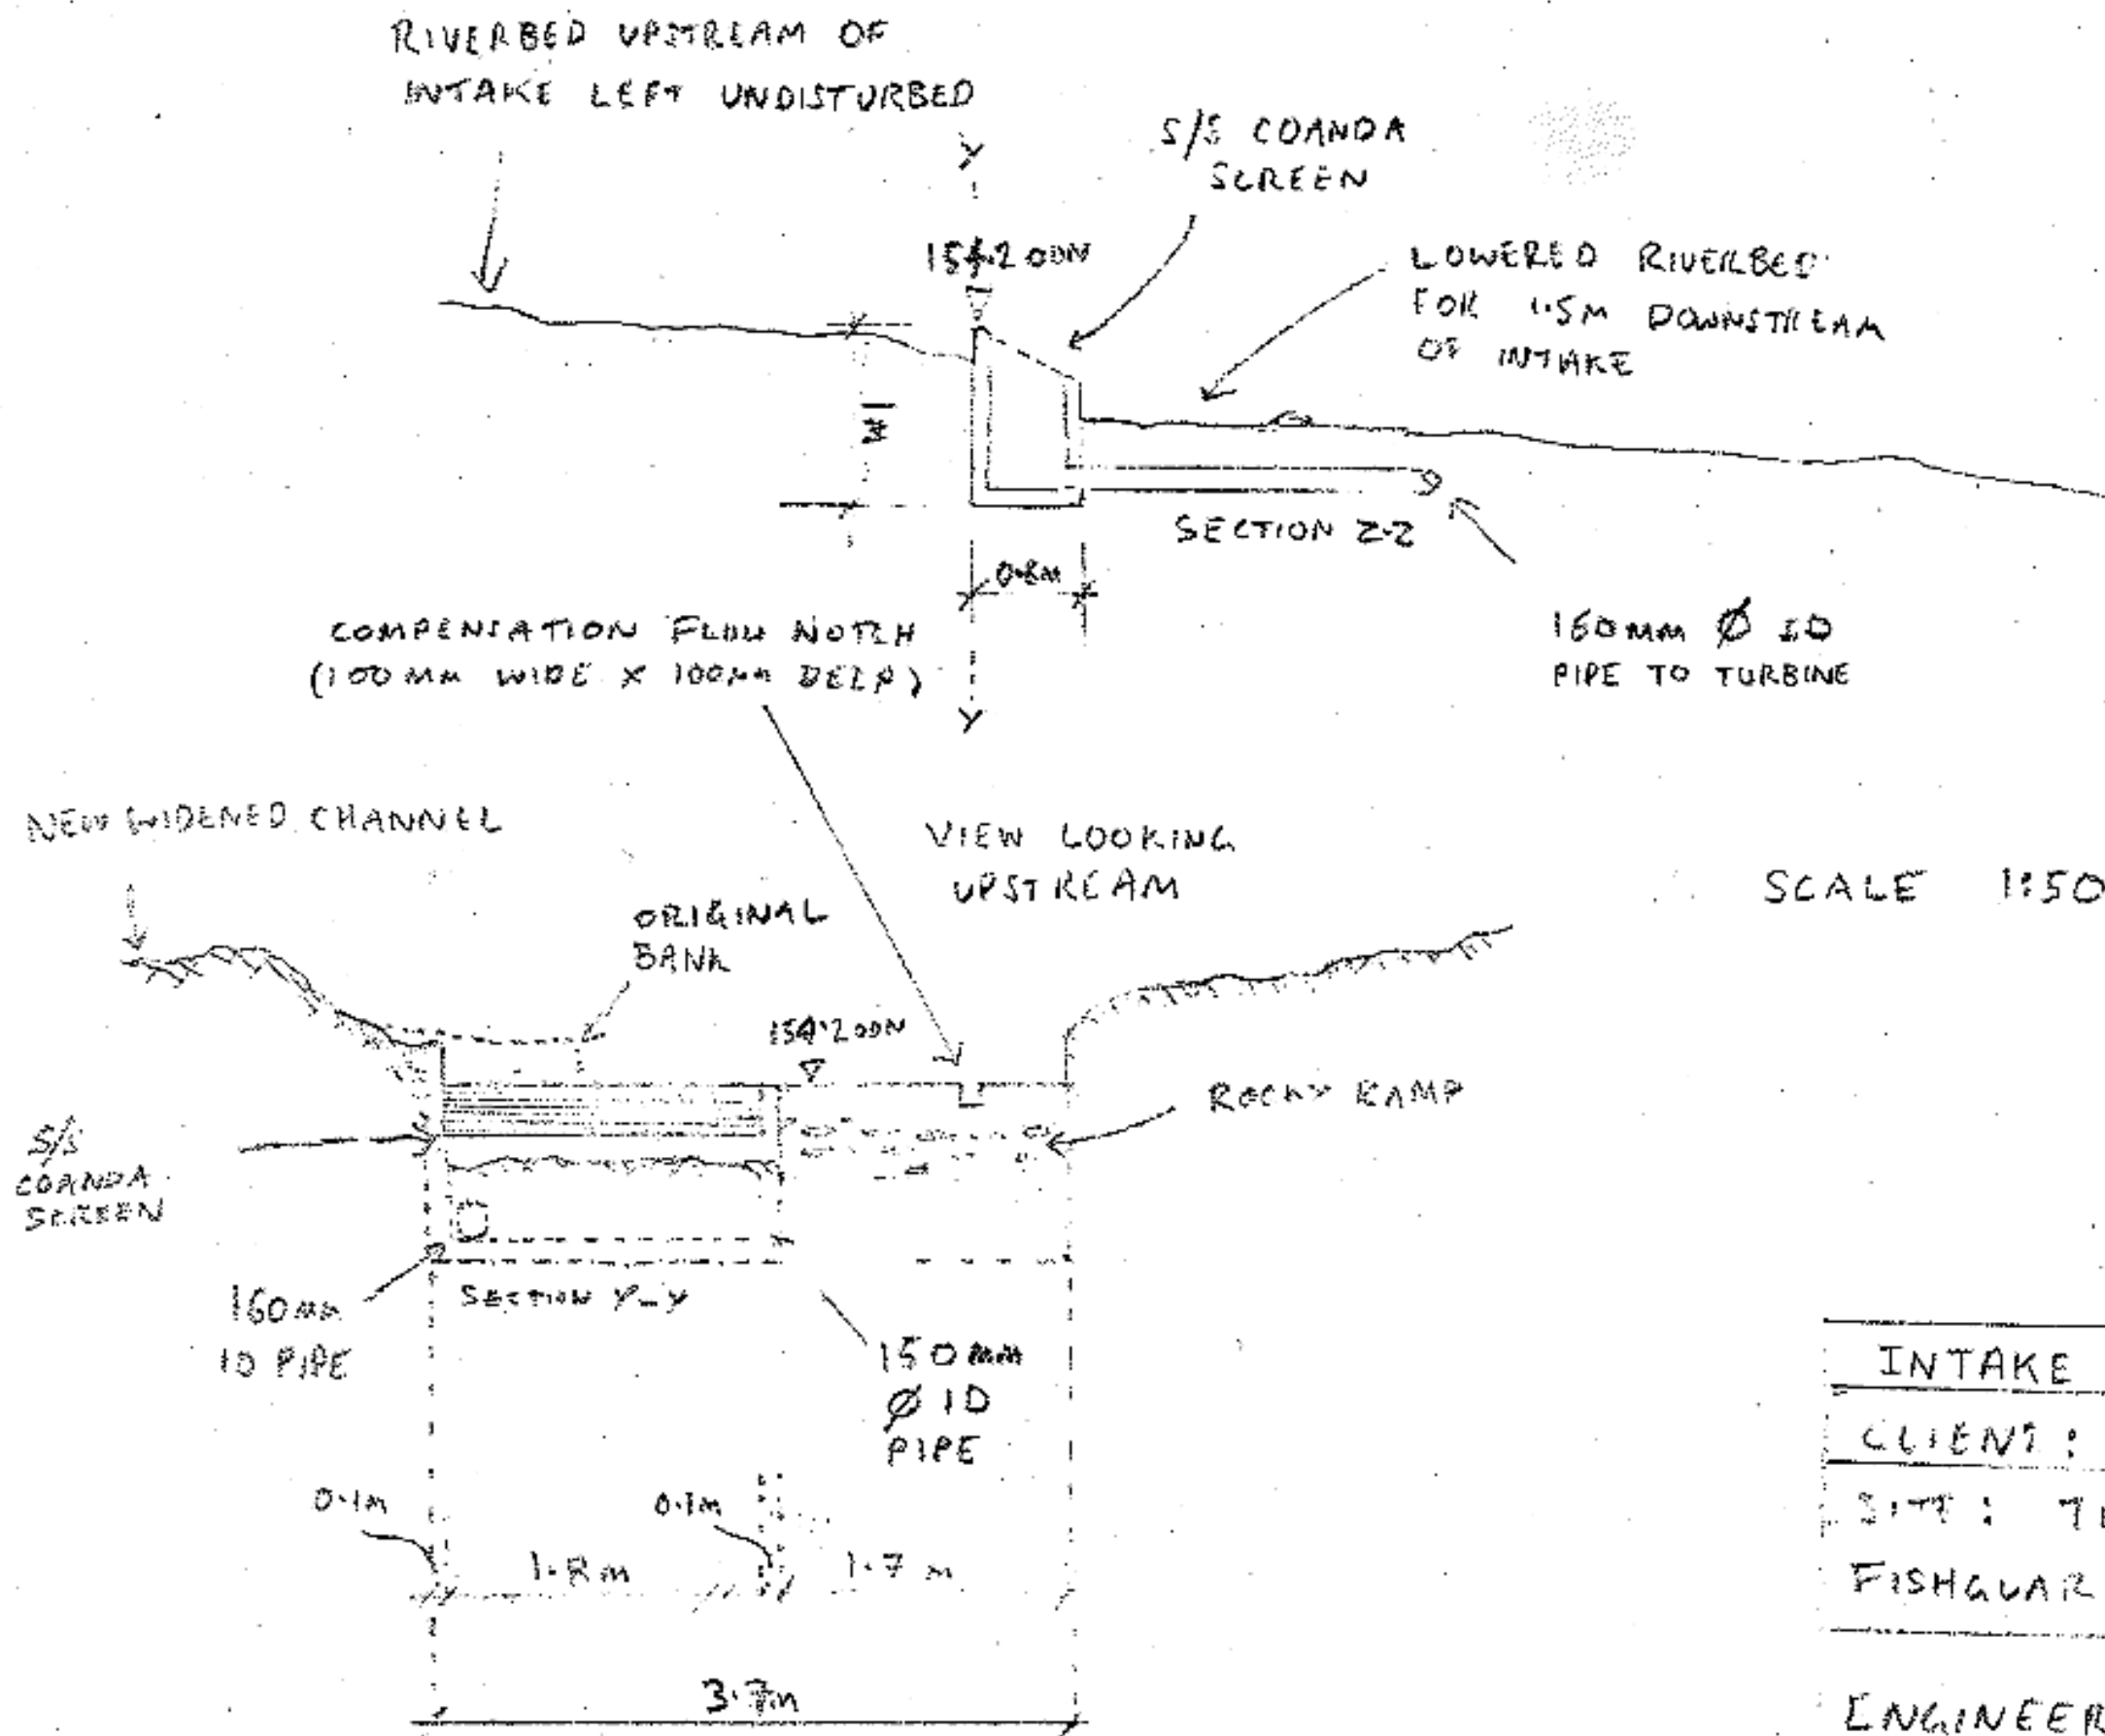 RIVERBED UPSTREAM OF
INTAKE LEFT UNDISTURBED
Y
S/S COANDA
SCREEN
154.2 ODN
LOWERED RIVERBED
FOR 1.5M DOWNSTREAM
OF INTAKE
SECTION Z-Z
0.8M
COMPENSATION FLOW NOTCH
(100 MM WIDE X 100MM DEEP)
160MM Ø ID
PIPE TO TURBINE
Y
NEW WIDENED CHANNEL
VIEW LOOKING
UPSTREAM
SCALE 1:50
ORIGINAL
BANK
154.2 ODN
ROCKY RAMP
S/S
COANDA
SCREEN
SECTION Y-Y
160MM
ID PIPE
150MM
Ø ID
PIPE
0.1M
0.1M
1.8M
1.7M
3.7M
INTAKE
CLIENT:
SITE:
FISHGUAR
ENGINEER